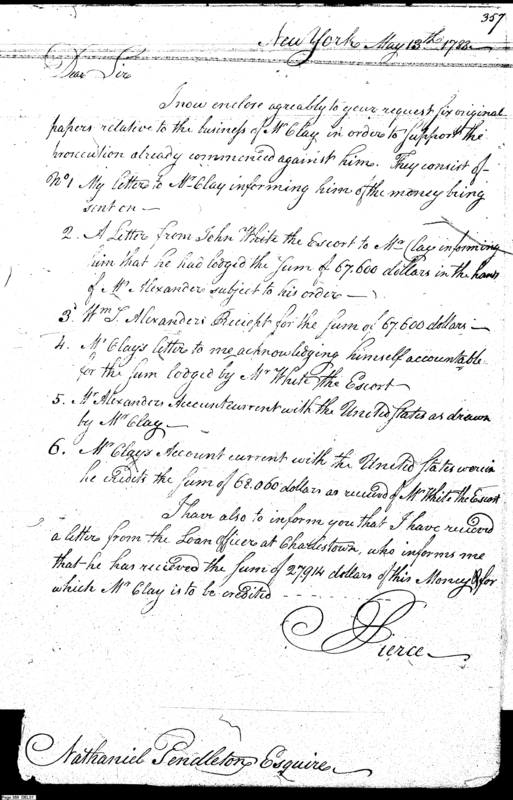 357
New York May 13th 1788
Dear Sir
I now enclose agreably to your request six original
papers relative to the business of Mr Clay in order to support the
prosecution already commenced against him. They consist of
No 1 My letter to Mr Clay informing him of the money being
sent on —
2. A Letter from John White the Escort to Mr Clay informing
him that he had lodged the Sum of 67.600 dollars in the hands
of Mr Alexander subject to his order —
3. Wm. S. Alexanders Receipt for the Sum of 67,600 dollars —
4. Mr Clay's letter to me acknowledging himself accountable
for the Sum lodged by Mr White the Escort
5. Mr Alexanders Account current with the United States as drawn
by Mr Clay —
6. Mr Clays Account current with the United States wherein
he credits the Sum of 62.060 dollars as received of Mr White the Escort
I have also to inform you that I have received
a letter from the Loan officer at Charlestown, who informs me
that he has received the Sum of 27,914 dollars of this Money & for
which Mr Clay is to be credited
Pierce
Nathaniel Pendleton Esquire